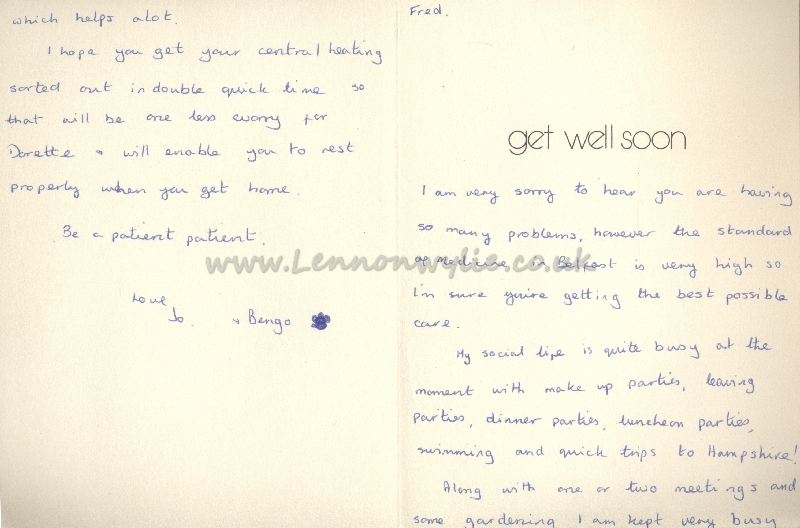 Fred.
get well soon
I am very sorry to hear you are having
so many problems, however the standard
of medicine in Belfast is very high so
I'm sure you're getting the best possible
care.
My social life is quite busy at the
moment with make up parties, leaving
parties, dinner parties, luncheon parties,
swimming and quick trips to Hampshire!
Along with one or two meetings and
some gardening I am kept very busy
which helps alot.
I hope you get your central heating
sorted out in double quick time so
that will be one less worry for
Dorette & will enable you to rest
properly when you get home.
Be a patient patient.
Love
Jo. & Bengo
www.Lennonwylie.co.uk